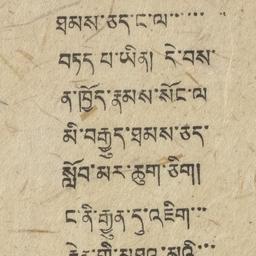 ཐམས་ཅད་ང་ལ་་་་་་
བཏད་པ་ཡིན། དེ་བས་
ན་ཁྱོད་རྣམས་སོང་ལ་
མི་བརྒྱུད་ཐམས་ཅད་
སློབ་མར་ཆུག་ཅིག།
ང་ནི་རྒྱུན་དུ་འཇིག་་་